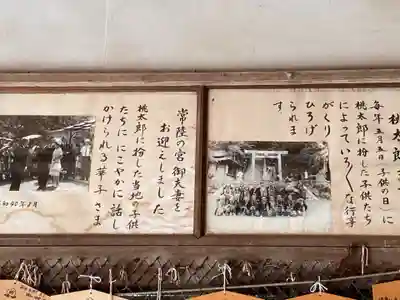 桃太郎
毎年五月五日子供の日に
桃太郎に扮した子供たち
によっていろ〱な行事
がくり
ひろげ
られま
す
常陸の宮御夫妻を
お迎えしました
桃太郎に扮した当地の子供
たちににこやかに話し
かけられる華子さま
40年8月